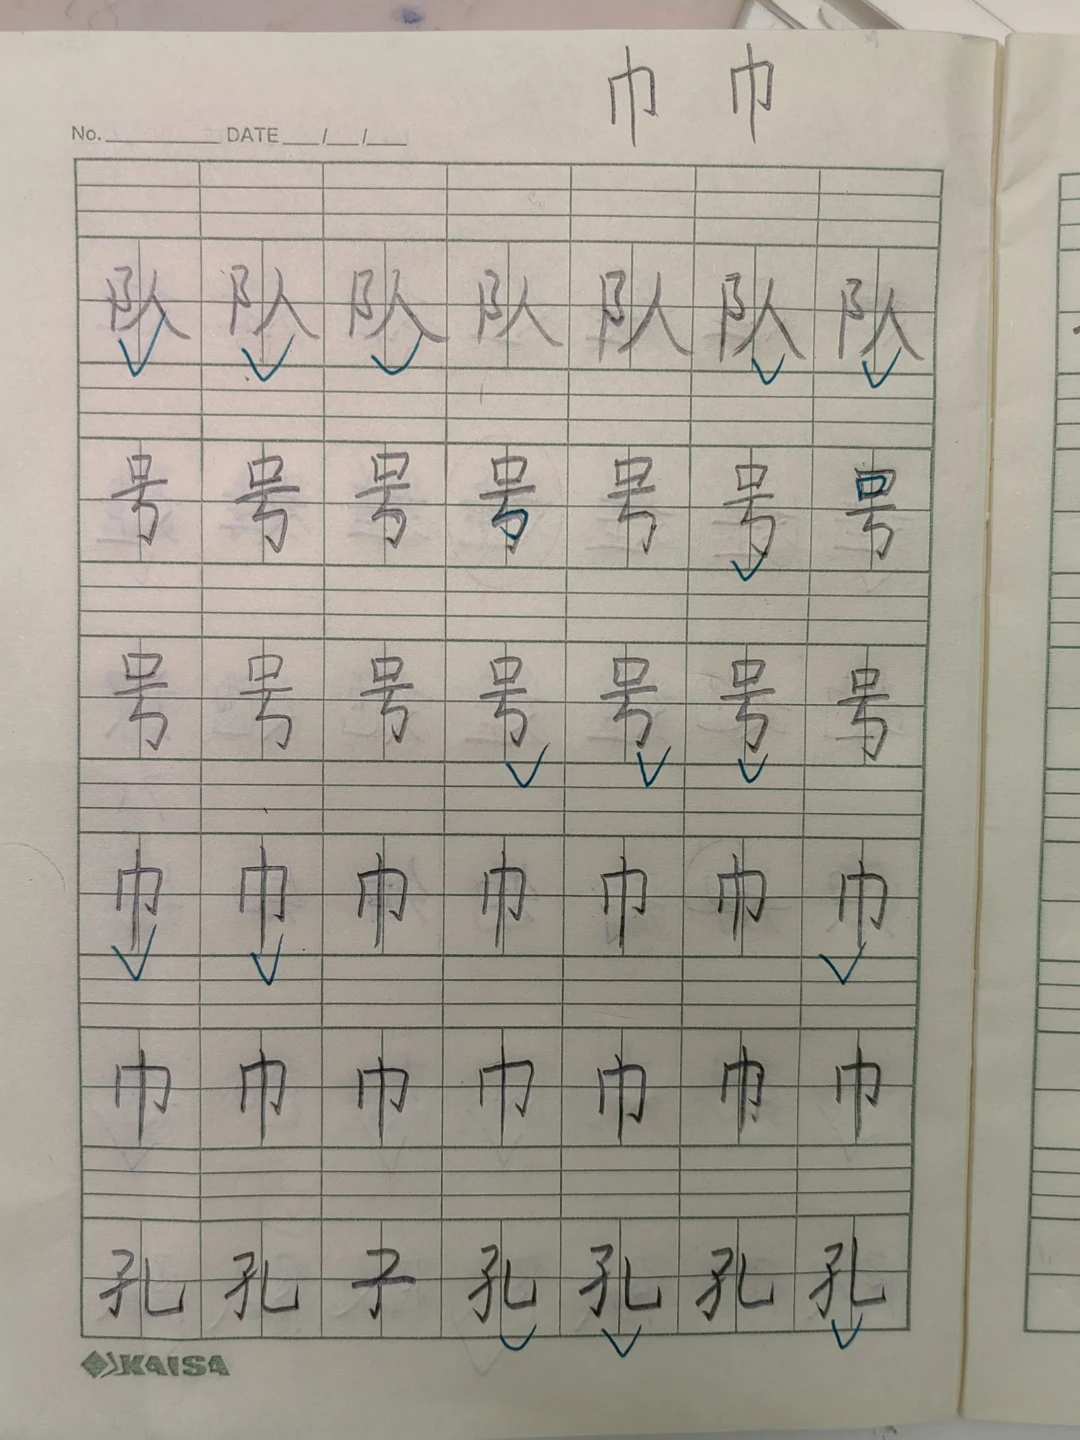 巾 巾
No. DATE / /
队 队 队 队 队 队 队
号 号 号 号 号 号 号
号 号 号 号 号 号 号
巾 巾 巾 巾 巾 巾 巾
巾 巾 巾 巾 巾 巾 巾
孔 孔 子 孔 孔 孔 孔
KAISA